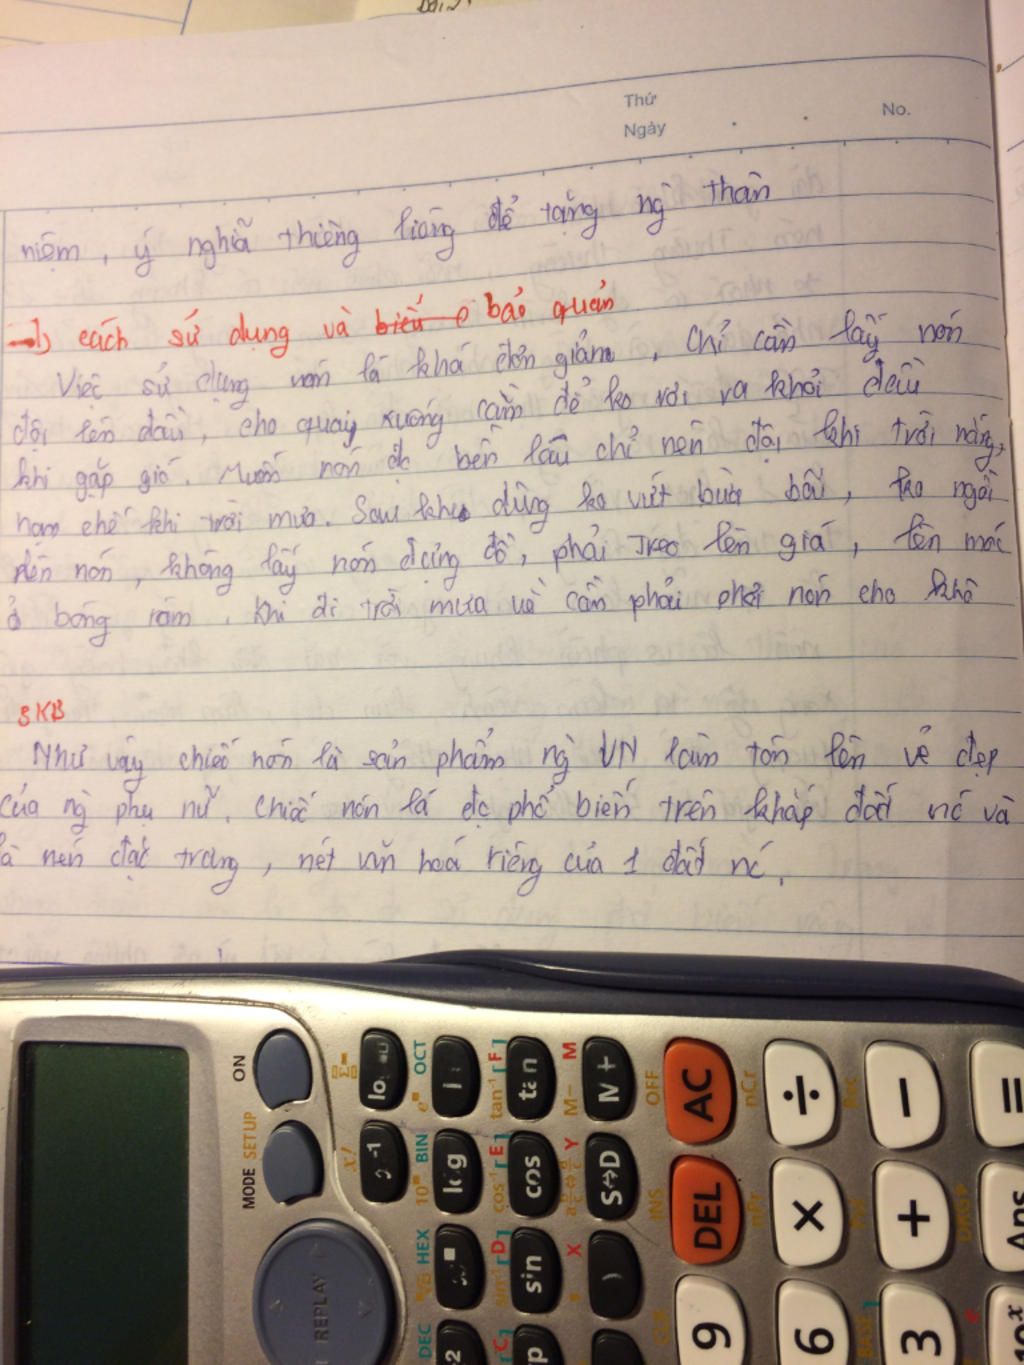 Thứ
Ngày
No.
niệm, ý nghĩa thiêng liêng để tặng ng thân
cách sử dụng và biểu bảo quản
Việc sử dụng nón lá khá đơn giản, chỉ cần lấy nón
đội lên đầu, cho quay xuống cằm để ko rơi ra khỏi đầu
khi gặp gió. Muốn nón đc bền lâu chỉ nên đội khi trời nắng,
hạn chế khi trời mưa. Sau khi dùng ko vứt bừa bãi, ko ngồi
lên nón, không lấy nón đựng đồ, phải treo lên giá, lên móc
ở bóng râm. Khi đi trời mưa về cần phải phơi nón cho khô
3 KB
Như vậy chiếc nón là sản phẩm ng VN làm tôn lên vẻ đẹp
của ng phụ nữ. Chiếc nón lá đc phổ biến trên khắp đất nc và
là nên đặc trưng, nét văn hoá riêng của 1 đất nc.
ON
MODE SETUP
REPLAY
OCT
BIN
HEX
DEC
log
tan
cos
sin
M+
S⇔D
M-
M
OFF
INS
AC
DEL
nCr
nPr
÷
×
−
+
=
Ans
9
6
3